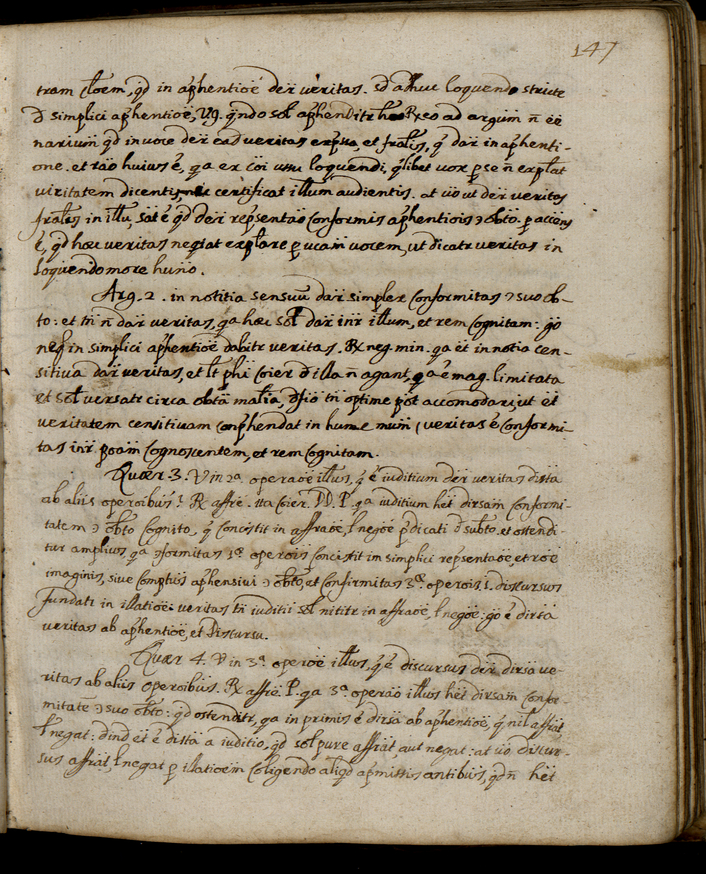 147
tram cl̃oem, qd in apħentioē der veritas. sd adhuc loquendo stricte
simplici apħentioē, v.g. qndo sol apħenditr ad argum n̄ eē
narium qd in voce der ead veritas et fralis, q dar in apħenti-
one. et rāo huius ē, qa ex cōi usu loquendi, qlibet vox p se n̄ explat
viritatem dicentis, certificat illum audientis. at uō ut der veritas
fralis in illu, sat ē qd der rēpsentaō Conformis apħentiois obto. p accns
ē, qd hæc veritas neqat explare p vocem, ut dicatr veritas in
loquendo more huño.
Arg. 2. in notitia sensuū dar simplex Conformitas suo ob-
to: et tn̄ n̄ dar veritas, qa hæc sol dar inr illum, et rem Cognitam: go
neq in simplici apħentioē dabitr veritas. R neg. min. qa et in notia cen-
sitiva dar veritas, et lt phi Coier illa n̄ agant, qa ē mag. limitata
et sol versatr circa obta malia, tn̄ optime pot accomodari, ut et
veritatem censitivam Conphendat in hunc mum (veritas ē Conformi-
tas inr poam Cognoscentem, et rem Cognitam.
Quær. 3. V in 2ª operaoē illus, q ē iuditium der veritas dista
ab aliis operoibus? R affre. ita Coier. DD. P. qa iuditium het dirsam Conformi-
tatem obto Cognito, q Concistit in affraoē, l negoē pdicati subto. et ostendi-
tur amplius, qa Conformitas 1æ operois Concistit in simplici rēpsentaoē, et roē
imaginis, sive Comptus apħensivi obto, et Conformitas 3æ operois, s. discursus
fundatr in illatioē. veritas tn̄ iuditii sol nititr in affraoē, l negoē; go ē dirsa
veritas ab apħentioē, et Discursu.
Quær 4. V in 3ª operoē illus, q ē discursus der dirsa ve-
ritas ab aliis operoibus. R affre. P. qa 3ª operaō illus het dirsam Confor-
mitate suo obto: qd ostenditr, qa in primis ē dirsa ab apħentioē, q nil affrat,
l negat: dind et ē dista a iuditio, qd sol pure affrat, aut negat: at uō discur-
sus affrat, l negat p illatioēm Coligendo aliqd apmissis antibus, qd n̄ het